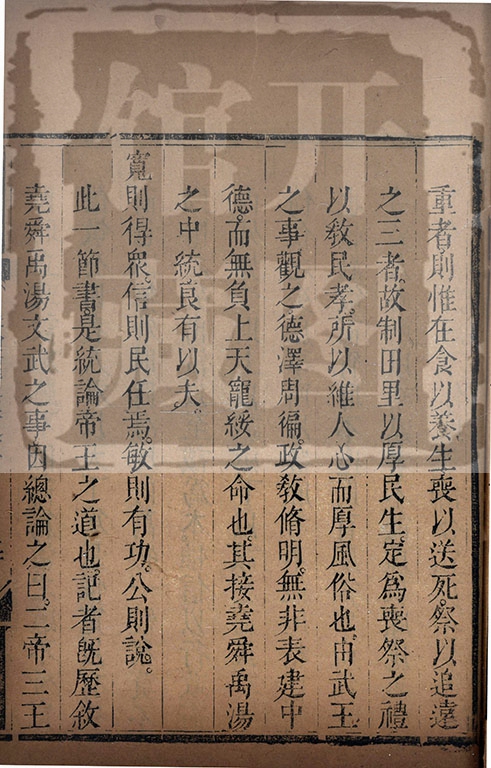 重者則惟在食以養生喪以送死祭以追遠
之三者故制田里以厚民生定爲喪祭之禮
以教民孝所以維人心而厚風俗也由武王
之事觀之德澤周徧政教脩明無非表建中
德而無負上天寵綏之命也其接堯舜禹湯
之中統良有以夫
寬則得衆信則民任焉敏則有功公則說
此一節書是統論帝王之道也記者既歷敘
堯舜禹湯文武之事因總論之曰二帝三王